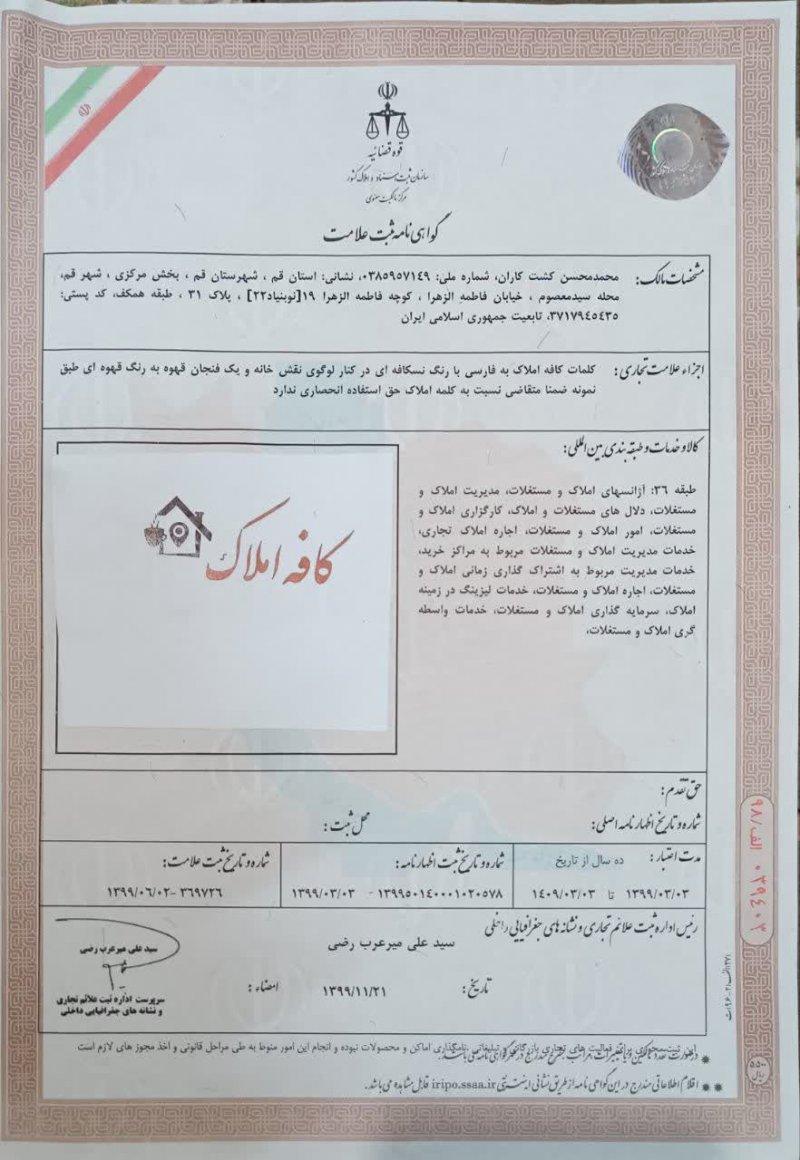 قوه قضائیه
سازمان ثبت اسناد و املاک کشور
مرکز مالکیت معنوی
گواهی نامه ثبت علامت
مشخصات مالک: محمدمحسن کشت کاران، شماره ملی: ۰۳۸۵۹۵۷۱۴۹، نشانی: استان قم ، شهرستان قم ، بخش مرکزی ، شهر قم،
محله سیدمعصوم ، خیابان فاطمه الزهرا ، کوچه فاطمه الزهرا ۱۹[نوبنیاد۲۲] ، پلاک ۳۱ ، طبقه همکف، کد پستی:
۳۷۱۷۹۴۵۴۳۵، تابعیت جمهوری اسلامی ایران
اجزاء علامت تجاری: کلمات کافه املاک به فارسی با رنگ نسکافه ای در کنار لوگوی نقش خانه و یک فنجان قهوه به رنگ قهوه ای طبق
نمونه ضمنا متقاضی نسبت به کلمه املاک حق استفاده انحصاری ندارد
کالا و خدمات و طبقه بندی بین المللی:
طبقه ۳۶: آژانسهای املاک و مستغلات، مدیریت املاک و
مستغلات، دلال های مستغلات و املاک، کارگزاری املاک و
مستغلات، امور املاک و مستغلات، اجاره املاک تجاری،
خدمات مدیریت املاک و مستغلات مربوط به مراکز خرید،
خدمات مدیریت مربوط به اشتراک گذاری زمانی املاک و
مستغلات، اجاره املاک و مستغلات، خدمات لیزینگ در زمینه
املاک، سرمایه گذاری املاک و مستغلات، خدمات واسطه
گری املاک و مستغلات،
کافه املاک
حق تقدم:
شماره و تاریخ اظهارنامه اصلی: محل ثبت:
مدت اعتبار: ده سال از تاریخ
۱۳۹۹/۰۳/۰۳ تا ۱۴۰۹/۰۳/۰۳
شماره و تاریخ ثبت اظهارنامه:
۱۳۹۹۵۰۱۴۰۰۰۱۰۲۰۵۷۸ - ۱۳۹۹/۰۳/۰۳
شماره و تاریخ ثبت علامت:
۳۶۹۷۲۶ -۱۳۹۹/۰۶/۰۲
رئیس اداره ثبت علائم تجاری و نشانه های جغرافیایی داخلی
سید علی میرعرب رضی
تاریخ: ۱۳۹۹/۱۱/۲۱ امضاء:
سید علی میرعرب رضی
سرپرست اداره ثبت علائم تجاری
و نشانه های جغرافیایی داخلی
اماکن و محصولات نبوده و انجام این امور منوط به طی مراحل قانونی و اخذ مجوز های لازم است
اقلام اطلاعاتی مندرج در این گواهی نامه از طریق نشانی اینترنتی iripo.ssaa.ir قابل مشاهده می باشد.
الف/۹۸ ۰۳۹۴۰۲
۵۵۰۰
ریال